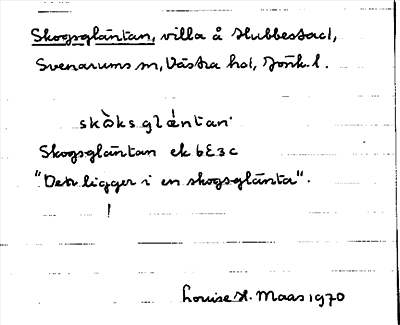 Skogsgläntan, villa å Hubbestad,
Svenarums sn, Västra hd, Jönk. l.
skòksglántan
Skogsgläntan ek 6E3c
"Det ligger i en skogsglänta".
Louise H. Maas 1970